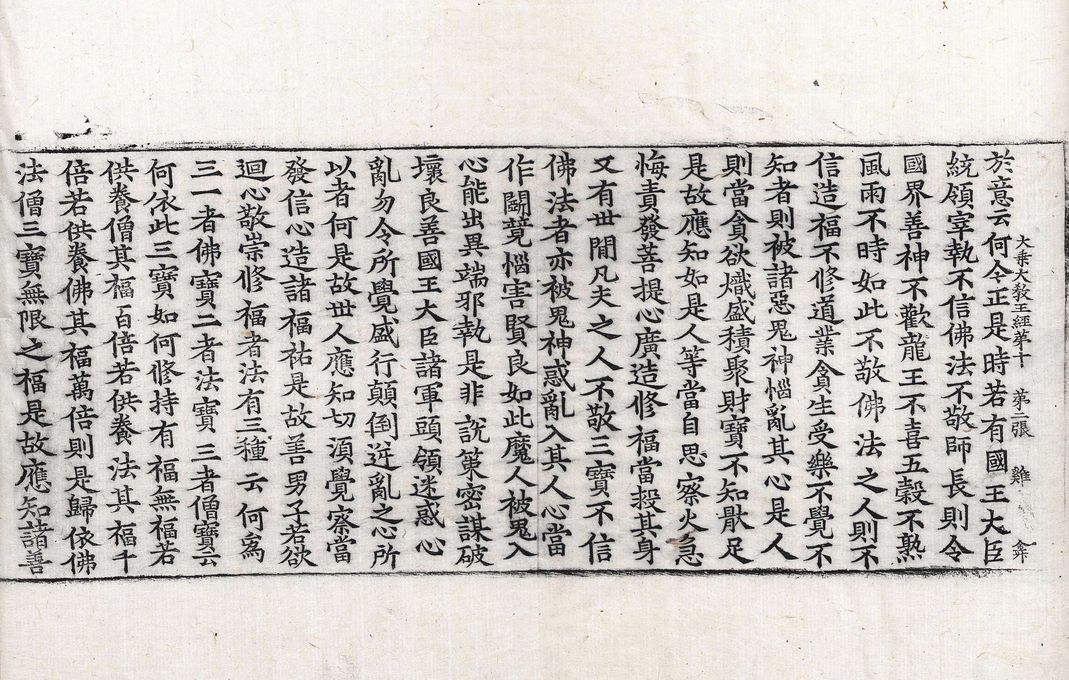 大乗大教王經第十　第二張　雞
於意云何今正是時若有國王大臣
統領宰執不信佛法不敬師長則令
國界善神不歡龍王不喜五穀不熟
風雨不時如此不敬佛法之人則不
信造福不修道業貪生受樂不覺不
知者則被諸惡鬼神惱亂其心是人
則當貪欲熾盛積聚財寶不知猒足
是故應知如是人等當自思察火急
悔責發菩提心廣造修福當投其身
又有世閒凡夫之人不敬三寶不信
佛法者亦被鬼神惑亂入其人心當
作鬭競惱害賢良如此魔人被鬼入
心能出異端邪執是非說策密謀破
壞良善國王大臣諸軍頭領迷惑心
亂勿令所覺盛行顛倒逆亂之心所
以者何是故世人應知切須覺察當
發信心造諸福祐是故善男子若欲
迴心敬崇修福者法有三種云何爲
三一者佛寶二者法寶三者僧寶云
何依此三寶如何修持有福無福若
供養僧其福百倍若供養法其福千
倍若供養佛其福萬倍則是歸依佛
法僧三寶無限之福是故應知諸善